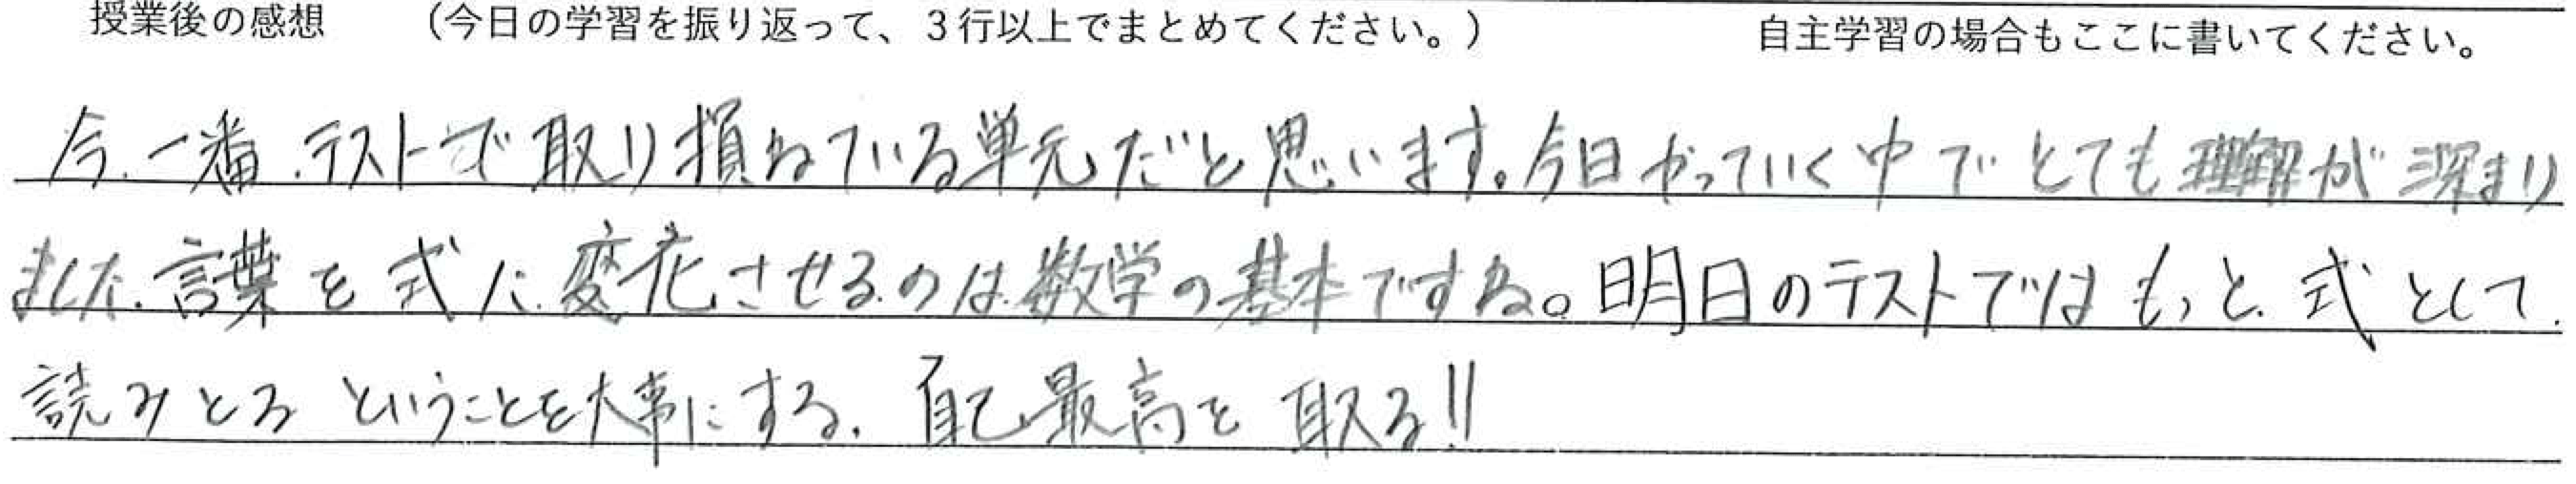 授業後の感想　（今日の学習を振り返って、３行以上でまとめてください。）　自主学習の場合もここに書いてください。
今、一番、テストで取り損ねている単元だと思います。今日やっていく中でとても理解が深まり
ました。言葉を式に変化させるのは数学の基本ですね。明日のテストではもっと、式として
読みとるということを大事にする。自己最高を取る!!